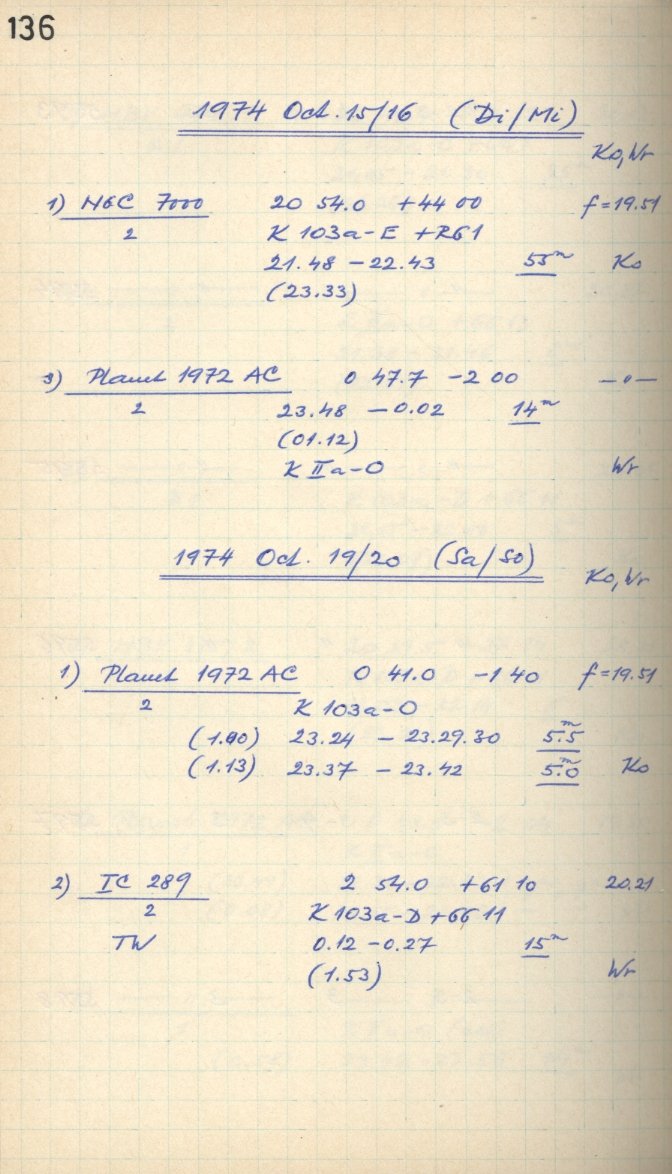 136
1974 Oct. 15/16 (Di/Mi)
Ko, Wr
1) NGC 7000 20 54.0 +44 00 f=19.51
2 K 103a-E + RG1
21.48 - 22.43 55m Ko
(23.33)
3) Planet 1972 AC 0 47.7 -2 00 -"-
2 23.48 - 0.02 14m
(01.12)
K IIa-O Wr
1974 Oct. 19/20 (Sa/So)
Ko, Wr
1) Planet 1972 AC 0 41.0 -1 40 f=19.51
2 K 103a-O
(1.00) 23.24 - 23.29.30 5.5m
(1.13) 23.37 - 23.42 5.0m Ko
2) IC 289 2 54.0 +61 10 20.21
2 K 103a-D + GG 11
TW 0.12 - 0.27 15m
(1.53) Wr